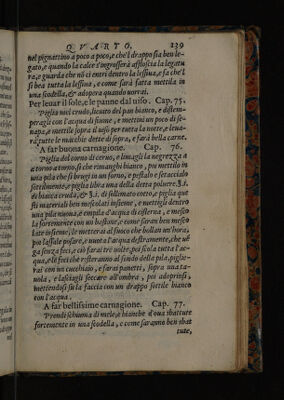 QVARTO. 139
nel pignattino a poco a poco, e che'l drappo sia ben le-
gato, e quando la calce s'ingrosserà affloscia la legatu
ra, e guarda che nō ci entri dentro la lessiua, e fa che'l
si bea tutta la lessiua, e come sarà fatta mettila in
una scodella, & adopera quando uorrai.
Per leuar il sole, e le panne dal uiso. Cap. 75.
Piglia noci crudo, licuito del pan bianco, e distem-
peragli con l'acqua di fiume, e mettini un poco di se-
napa, e mettile sopra il uiso per tutta la notte, e leua-
rà tutte le macchie dette di sopra, e farà bella carne.
A far buona carnagione. Cap. 76.
Piglia del corno di ceruo, e limagli la negrezza a
torno a torno, sì che rimanghi bianco, poi mettilo in
una pila che si brugi in un forno, e pestalo e setaccialo
sottilmente, e piglia libra una della detta poluere, ℥.i.
di biacca cruda, & ℥.i. di sollimato cotto, e piglia que
sti materiali ben mescolati insieme, e mettigli dentro
una pila nuoua, e empila d'acqua di cisterna, e mesco
la fortemente con un bastone, e come saran ben mesco
late insieme, le metterai al fuoco che bollan un'hora,
poi lassale posare, e uuota l'acqua destramente, che uē
ga senza feci, e ciò farai tre uolte, poi scola tutta l'ac-
qua, e le feci che resteranno al fondo della pila, piglie-
rai con un cucchiaio, e farai panetti, sopra una ta-
uola, e lasciagli seccare all'ombra, poi adoprisi,
mettendosi su la faccia con un drappo sottile bianco
con l'acqua.
A far bellissime carnagione. Cap. 77.
Prendi schiuma di mele, e bianche d'oua sbattute
fortemente in una scodella, e come saranno ben sbat
tute,